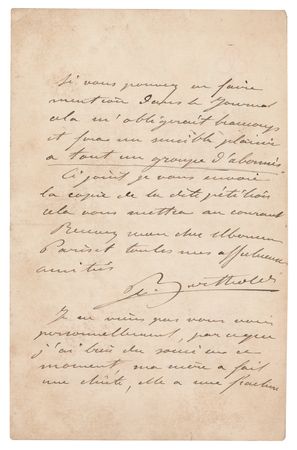 Si vous pouvez en faire
mention dans le Journal
cela m'obligerait beaucoup
et fera un sensible plaisir
a tout un groupe d'abonnés
Ci joint je vous envoi
la copie de la dite pétition
cela vous mettra au courant
Recevez mon cher Monsieur
Pariset toutes mes affectueuses
amitiés
Bartholdi
Je ne viens pas vous voir
personnellement, parceque
j'ai bien du souci en ce
moment, ma mère a fait
une chûte, elle a une fracture